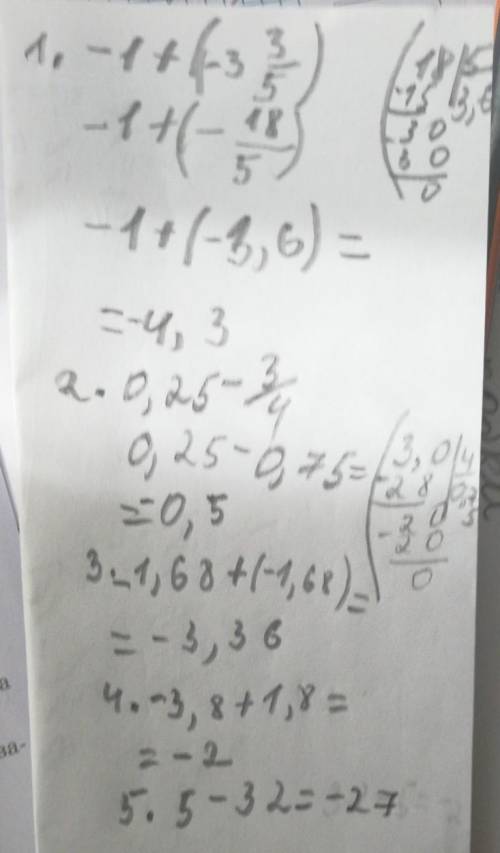 1. -1 + (-3 3/5)
-1 + (- 18/5)
-1 + (-3,6) =
= -4,3
(18 | 5
-15 3,6
-30
30
0
2. 0,25 - 3/4
0,25 - 0,75 =
= -0,5
(3,0 | 4
-28 0,75
-20
20
0
3. -1,68 + (-1,68) =
= -3,36
4. -3,8 + 1,8 =
= -2
5. 5 - 32 = -27
а
за-